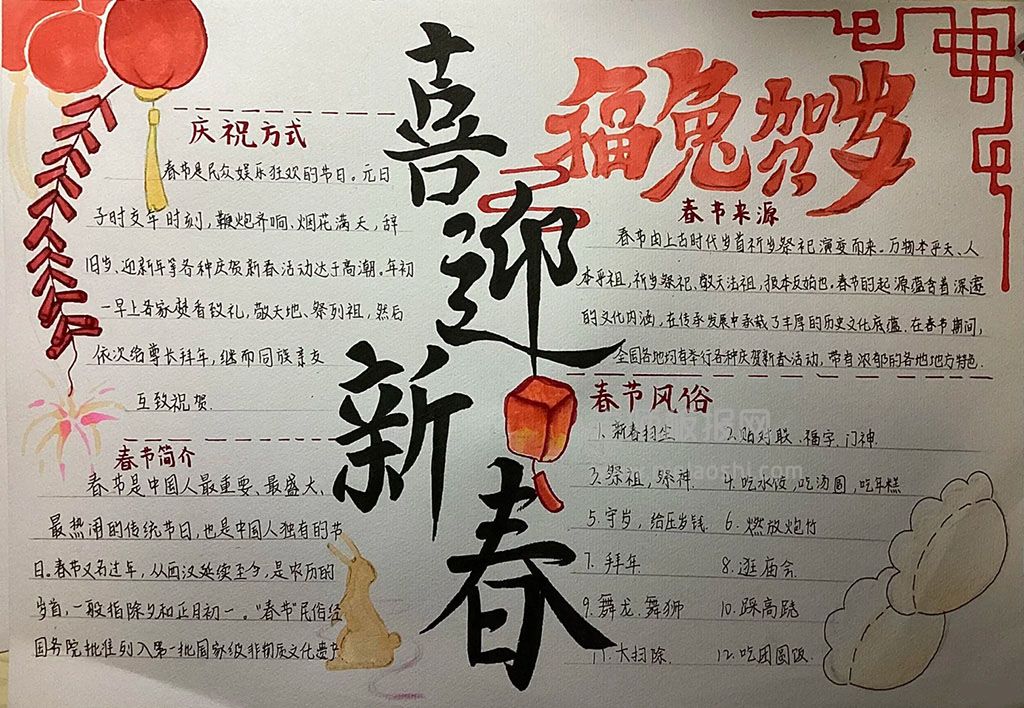 喜迎新春
福兔贺岁
庆祝方式
春节是民众娱乐狂欢的节日。元日
子时交年时刻,鞭炮齐响、烟花满天,辞
旧岁、迎新年等各种庆贺新春活动达于高潮。年初
一早上各家焚香致礼,敬天地、祭列祖,然后
依次给尊长拜年,继而同族亲友
互致祝贺.
春节简介
春节是中国人最重要、最盛大、
最热闹的传统节日,也是中国人独有的节
日。春节又名过年,从西汉延续至今,是农历的
岁首,一般指除夕和正月初一。“春节”民俗经
国务院批准列入第一批国家级非物质文化遗产
春节来源
春节由上古时代岁首祈岁祭祀演变而来。万物本乎天、人
本乎祖,祈岁祭祀、敬天法祖,报本反始也.春节的起源蕴含着深邃
的文化内涵,在传承发展中承载了丰厚的历史文化底蕴.在春节期间,
全国各地均有举行各种庆贺新春活动,带有浓郁的各地地方特色.
春节风俗
1.新春扫尘 2.贴对联、福字、门神.
3.祭祖,祭神. 4.吃水饺,吃汤圆,吃年糕
5.守岁,给压岁钱. 6.燃放炮竹
7.拜年 8.逛庙会
9.舞龙.舞狮 10.踩高跷
11.大扫除. 12.吃团圆饭.